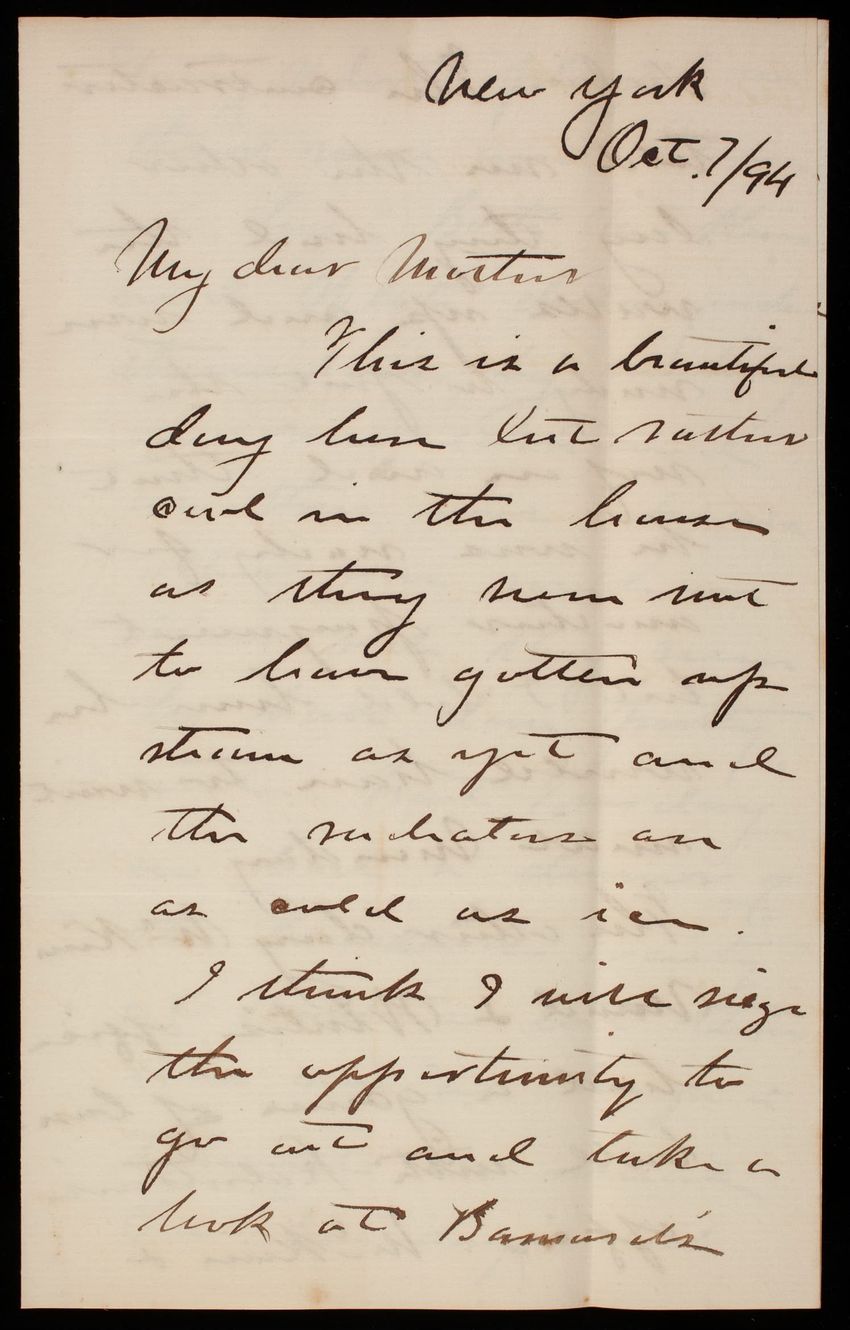 New York
Oct. 7/94
My dear Mother
This is a beautiful
day here but rather
cool in the house
as they seem not
to have gotten up
steam as yet and
the radiators are
as cold as ice.
I think I will siege
the opportunity to
go out and take a
look at Barnard's